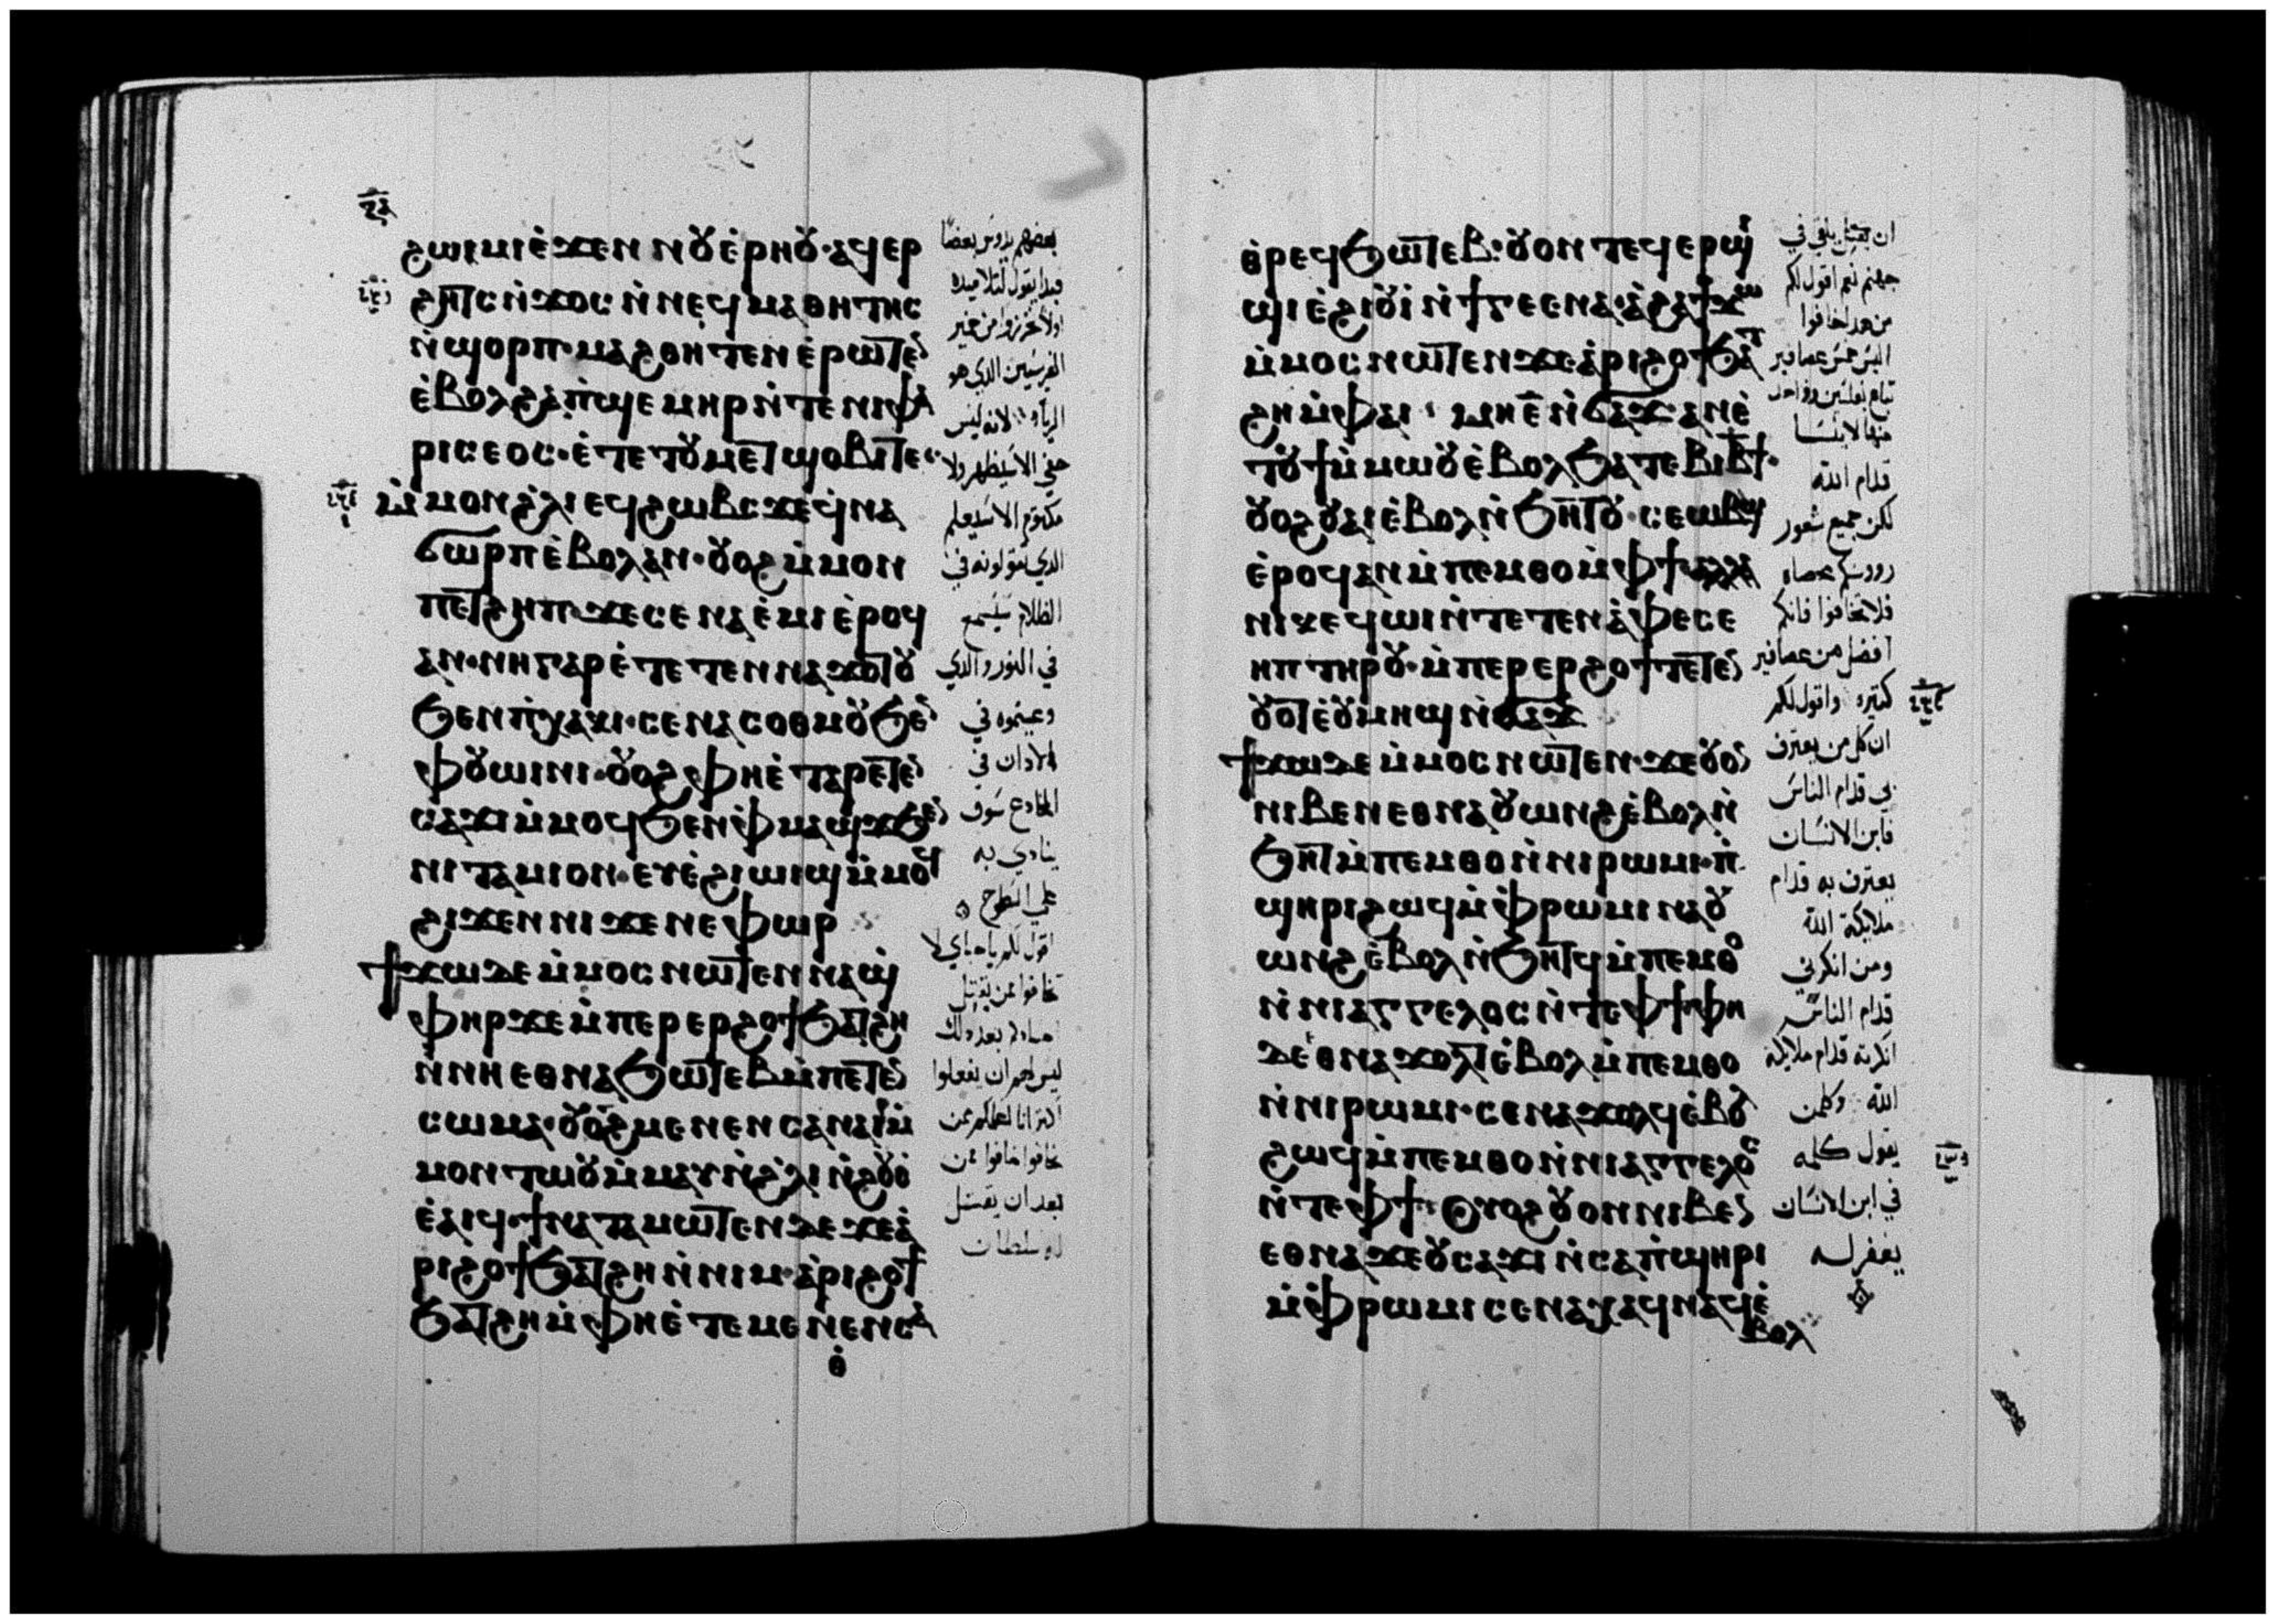 ϩⲱⲙⲓ ⲉ̀ϫⲉⲛ ⲛⲟⲩⲉ̀ⲣⲏⲟⲩ· ⲁϥⲉⲣ
ϩⲏⲧⲥ ⲛ̀ϫⲟⲥ ⲛ̀ⲛⲉϥⲙⲁⲑⲏⲧⲏⲥ
ⲛ̀ϣⲟⲣⲡ· ⲙⲁϩⲑⲏⲧⲉⲛ ⲉ̀ⲣⲱⲧⲉⲛ
ⲉ̀ⲃⲟⲗϩⲁ ⲡ̀ϣⲉⲙⲏⲣ ⲛ̀ⲧⲉ ⲛⲓⲫⲁ
ⲣⲓⲥⲉⲟⲥ· ⲉ̀ⲧⲉ ⲧⲟⲩⲙⲉⲧϣⲟⲃⲓ ⲧⲉ·
ⲙ̀ⲙⲟⲛ ϩ̀ⲗⲓ ⲉϥϩⲱⲃⲥ ϫⲉ ϥ̀ⲛⲁ
ϭⲱⲣⲡ ⲉ̀ⲃⲟⲗ ⲁⲛ· ⲟⲩⲟϩ ⲙ̀ⲙⲟⲛ
ⲡⲉⲧϩⲏⲡ ϫⲉ ⲥⲉⲛⲁⲉ̀ⲙⲓ ⲉ̀ⲣⲟϥ
ⲁⲛ· ⲛⲏ ⲅⲁⲣ ⲉ̀ⲧⲉⲧⲉⲛⲛⲁϫⲟⲧⲟⲩ
ϧⲉⲛ ⲡ̀ⲭⲁⲕⲓ· ⲥⲉⲛⲁⲥⲟⲑⲙⲟⲩ ϧⲉⲛ
ⲫⲟⲩⲱⲓⲛⲓ· ⲟⲩⲟϩ ⲫⲏ ⲉ̀ⲧⲁⲣⲉⲧⲉⲛ
ⲥⲁϫⲓ ⲙ̀ⲙⲟϥ ϧⲉⲛ ⲫ̀ⲙⲁϣϫ ϧⲉⲛ
ⲛⲓⲧⲁⲙⲓⲟⲛ· ⲉⲩⲉ̀ϩⲓⲱⲓϣ ⲙ̀ⲙⲟϥ
ϩⲓϫⲉⲛ ⲛⲓϫⲉⲛⲉⲫⲱⲣ
ϯϫⲱ ⲇⲉ ⲙ̀ⲙⲟⲥ ⲛⲱⲧⲉⲛ ⲛⲁϣ
ⲫⲏⲣ ϫⲉ ⲙ̀ⲡⲉⲣⲉⲣϩⲟϯ ϧⲁⲧϩⲏ
ⲛ̀ⲛⲏ ⲉⲑⲛⲁϧⲱⲧⲉⲃ ⲙ̀ⲡⲉⲧⲉⲛ
ⲥⲱⲙⲁ· ⲟⲩⲟϩ ⲙⲉⲛⲉⲛⲥⲁ ⲛⲁⲓ ⲙ̀
ⲙⲟⲛⲧⲱⲟⲩ ⲙ̀ⲙⲁⲩ ⲛ̀ϩ̀ⲗⲓ ⲛ̀ϩⲟⲩⲟ̀
ⲉ̀ⲁⲓϥ· ϯⲛⲁⲧⲁⲙⲱⲧⲉⲛ ⲇⲉ ϫⲉ ⲁ̀
ⲣⲓϩⲟϯ ϧⲁⲧϩⲏ ⲛ̀ⲛⲓⲙ· ⲁ̀ⲣⲓϩⲟϯ
ϧⲁⲧϩⲏ ⲙ̀ⲫⲏ ⲉ̀ⲧⲉ ⲙⲉⲛⲉⲛⲥⲁ
ⲑ̀
بعضهم يدوس بعضا
فبدا يقول لتلاميذه
اولا تحرزوا من خمير
الفريسيين الذي هو
الرياء لانه ليس
خفي الا سيظهر ولا
مكتوم الا سيعلم
الذي تقولونه في
الظلام سيسمع
في النور والذي
وعيتموه في
الاذان في
المخادع سوف
ينادي به
علي السطوح
اقول لكم يا احباي لا
تخافوا ممن يقتل
اجسادكم بعد ذلك
ليس لهم ان يفعلوا
اكثر انا اعلمكم ممن
تخافوا خافوا ممن
بعد ان يقتل
له سلطان
ⲑ̀ⲣⲉϥϧⲱⲧⲉⲃ· ⲟⲩⲟⲛⲧⲉϥ ⲉⲣϣⲓ
ϣⲓ ⲉ̀ϩⲓⲟⲩⲓ̀ ⲛ̀ϯⲅⲉⲉⲛⲛⲁ· ⲁ̀ϩⲁ ϯϫⲱ
ⲙ̀ⲙⲟⲥ ⲛⲱⲧⲉⲛ ϫⲉ ⲁ̀ⲣⲓϩⲟϯ ϧⲁⲧ
ϩⲏ ⲙ̀ⲫⲁⲓ· ⲙⲏ ⲉ̄ ⲛ̀ϭⲁϫ ⲁⲛ ⲉ̀
ⲧⲟⲩϯ ⲙ̀ⲙⲱⲟⲩ ⲉ̀ⲃⲟⲗ ϧⲁ ⲧⲉⲃⲓ ⲃ̄ϯ·
ⲟⲩⲟϩ ⲟⲩⲁⲓ ⲉ̀ⲃⲟⲗ ⲛ̀ϧⲏⲧⲟⲩ· ⲥⲉⲱⲃϣ
ⲉ̀ⲣⲟϥ ⲁⲛ ⲙ̀ⲡⲉⲙⲑⲟ ⲙ̀ⲫϯ ⲁⲗⲗⲁ
ⲛⲓⲕⲉϥⲱⲓ ⲛ̀ⲧⲉ ⲧⲉⲛⲁ̀ⲫⲉ ⲥⲉ
ⲏⲡ ⲧⲏⲣⲟⲩ· ⲙ̀ⲡⲉⲣⲉⲣϩⲟϯ ⲧⲉⲧⲉⲛ
ⲟⲩⲟⲧ ⲉ̀ⲟⲩⲙⲏϣ ⲛ̀ϭⲁϫ
ϯϫⲱ ⲇⲉ ⲙ̀ⲙⲟⲥ ⲛⲱⲧⲉⲛ· ϫⲉ ⲟⲩⲟⲛ
ⲛⲓⲃⲉⲛ ⲉⲑⲛⲁⲟⲩⲱⲛϩ ⲉ̀ⲃⲟⲗ ⲛ̀
ϧⲏⲧ ⲙ̀ⲡⲉⲙⲑⲟ ⲛ̀ⲛⲓⲣⲱⲙⲓ· ⲡ̀
ϣⲏⲣⲓ ϩⲱϥ ⲙ̀ⲫ̀ⲣⲱⲙⲓ ⲛⲁⲟⲩ
ⲱⲛϩ ⲉ̀ⲃⲟⲗ ⲛ̀ϧⲏⲧϥ ⲙ̀ⲡⲉⲙⲑⲟ
ⲛ̀ⲛⲓⲁⲅⲅⲉⲗⲟⲥ ⲛ̀ⲧⲉ ⲫϯ· ⲫⲏ
ⲇⲉ ⲉⲑⲛⲁϫⲟⲗⲧ ⲉ̀ⲃⲟⲗ ⲙ̀ⲡⲉⲙⲑⲟ
ⲛ̀ⲛⲓⲣⲱⲙⲓ· ⲥⲉⲛⲁϫⲟⲗϥ ⲉ̀ⲃⲟⲗ
ϩⲱϥ ⲙ̀ⲡⲉⲙⲑⲟ ⲛ̀ⲛⲓⲁⲅⲅⲉⲗⲟⲥ
ⲛ̀ⲧⲉ ⲫϯ· ⲟⲩⲟϩ ⲟⲩⲟⲛ ⲛⲓⲃⲉⲛ
ⲉⲑⲛⲁϫⲉ ⲟⲩⲥⲁϫⲓ ⲛ̀ⲥⲁ ⲡ̀ϣⲏⲣⲓ
ⲙ̀ⲫ̀ⲣⲱⲙⲓ ⲥⲉⲛⲁⲭⲁϥ ⲛⲁϥ ⲉ̀
ⲃⲟⲗ
ان يقتل يلقي في
جهنم نعم اقول لكم
من هذا خافوا
اليس خمس عصافير
تباع بفلسين وواحد
منها لا ينسا
قدام الله
لكن جميع شعور
رووسكم محصاه
فلا تخافوا فانكم
افضل من عصافير
كثيره واقول لكم
ان كل من يعترف
بي قدام الناس
فابن الانسان
يعترف به قدام
ملايكة الله
ومن انكرني
قدام الناس
انكرته قدام ملايكة
الله وكلمن
يقول كلمه
في ابن الانسان
يغفر له